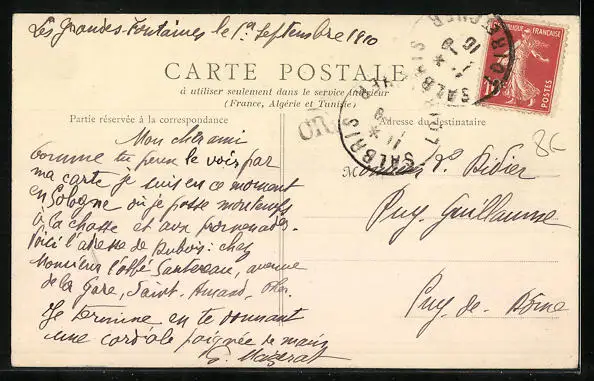 Les Grandes-Fontaines le 1er Septembre 1910
RÉPUBLIQUE FRANÇAISE
POSTES
CARTE POSTALE
à utiliser seulement dans le service intérieur
(France, Algérie et Tunisie)
Partie réservée à la correspondance
Adresse du destinataire
SALBRIS
LOIR-ET-CHER
SALBRIS
OR
8E
Mon cher ami
Comme tu peux le voir par
ma carte je suis en ce moment
en Sologne où je passe mon temps
à la chasse et aux promenades.
Voici l'adresse de Dubois: chez
Monsieur l'abbé Sautereau, avenue
de la gare, Saint-Amand, Cher.
Je termine en te donnant
une cordiale poignée de main
Monsieur P. Didier
Puy-Guillaume
Puy-de-Dôme